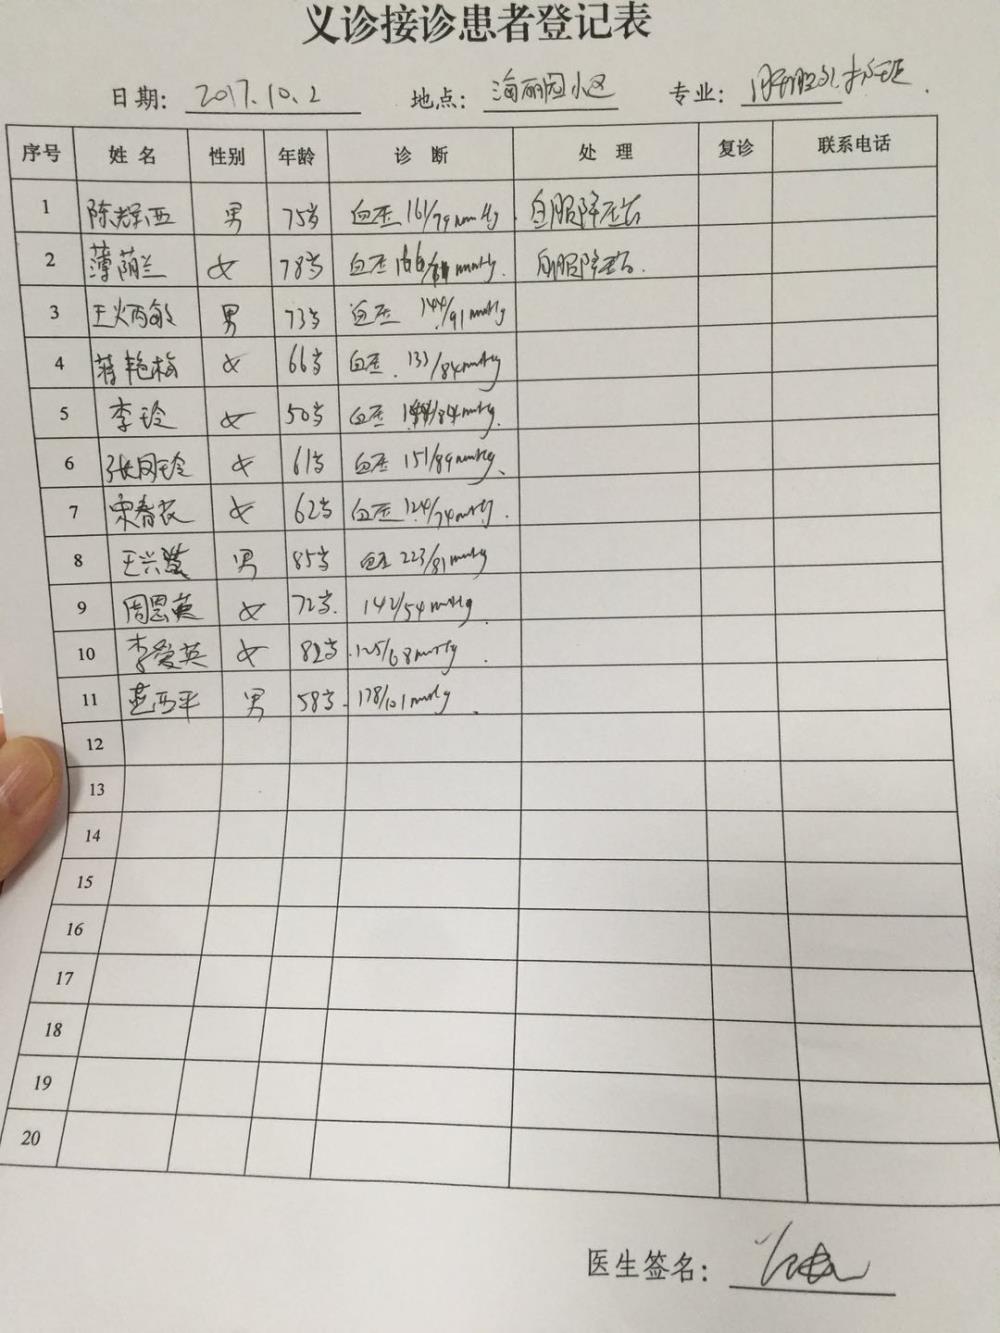 义诊接诊患者登记表
日期: 2017.10.2 地点: 海丽园小区 专业:
序号 姓名 性别 年龄 诊断 处理 复诊 联系电话
1 陈辉亚 男 75岁 血压 161/79mmHg 自服降压药
2 薄荫兰 女 78岁 血压 mmHg. 自服降压药.
3 王炳敏 男 73岁 血压 144/91mmHg
4 蒋艳梅 女 66岁 血压. 133/84mmHg
5 李玲 女 50岁 血压 /84mmHg.
6 张凤玲 女 61岁 血压 151/89mmHg、
7 宋春农 女 62岁 血压 124/74mmHg.
8 王兴 男 85岁 血压 223/81mmHg
9 周恩英 女 72岁. 142/54mmHg
10 李爱英 女 82岁 125/68mmHg
11 西平 男 58岁. 178/101mmHg
12
13
14
15
16
17
18
19
20
医生签名: